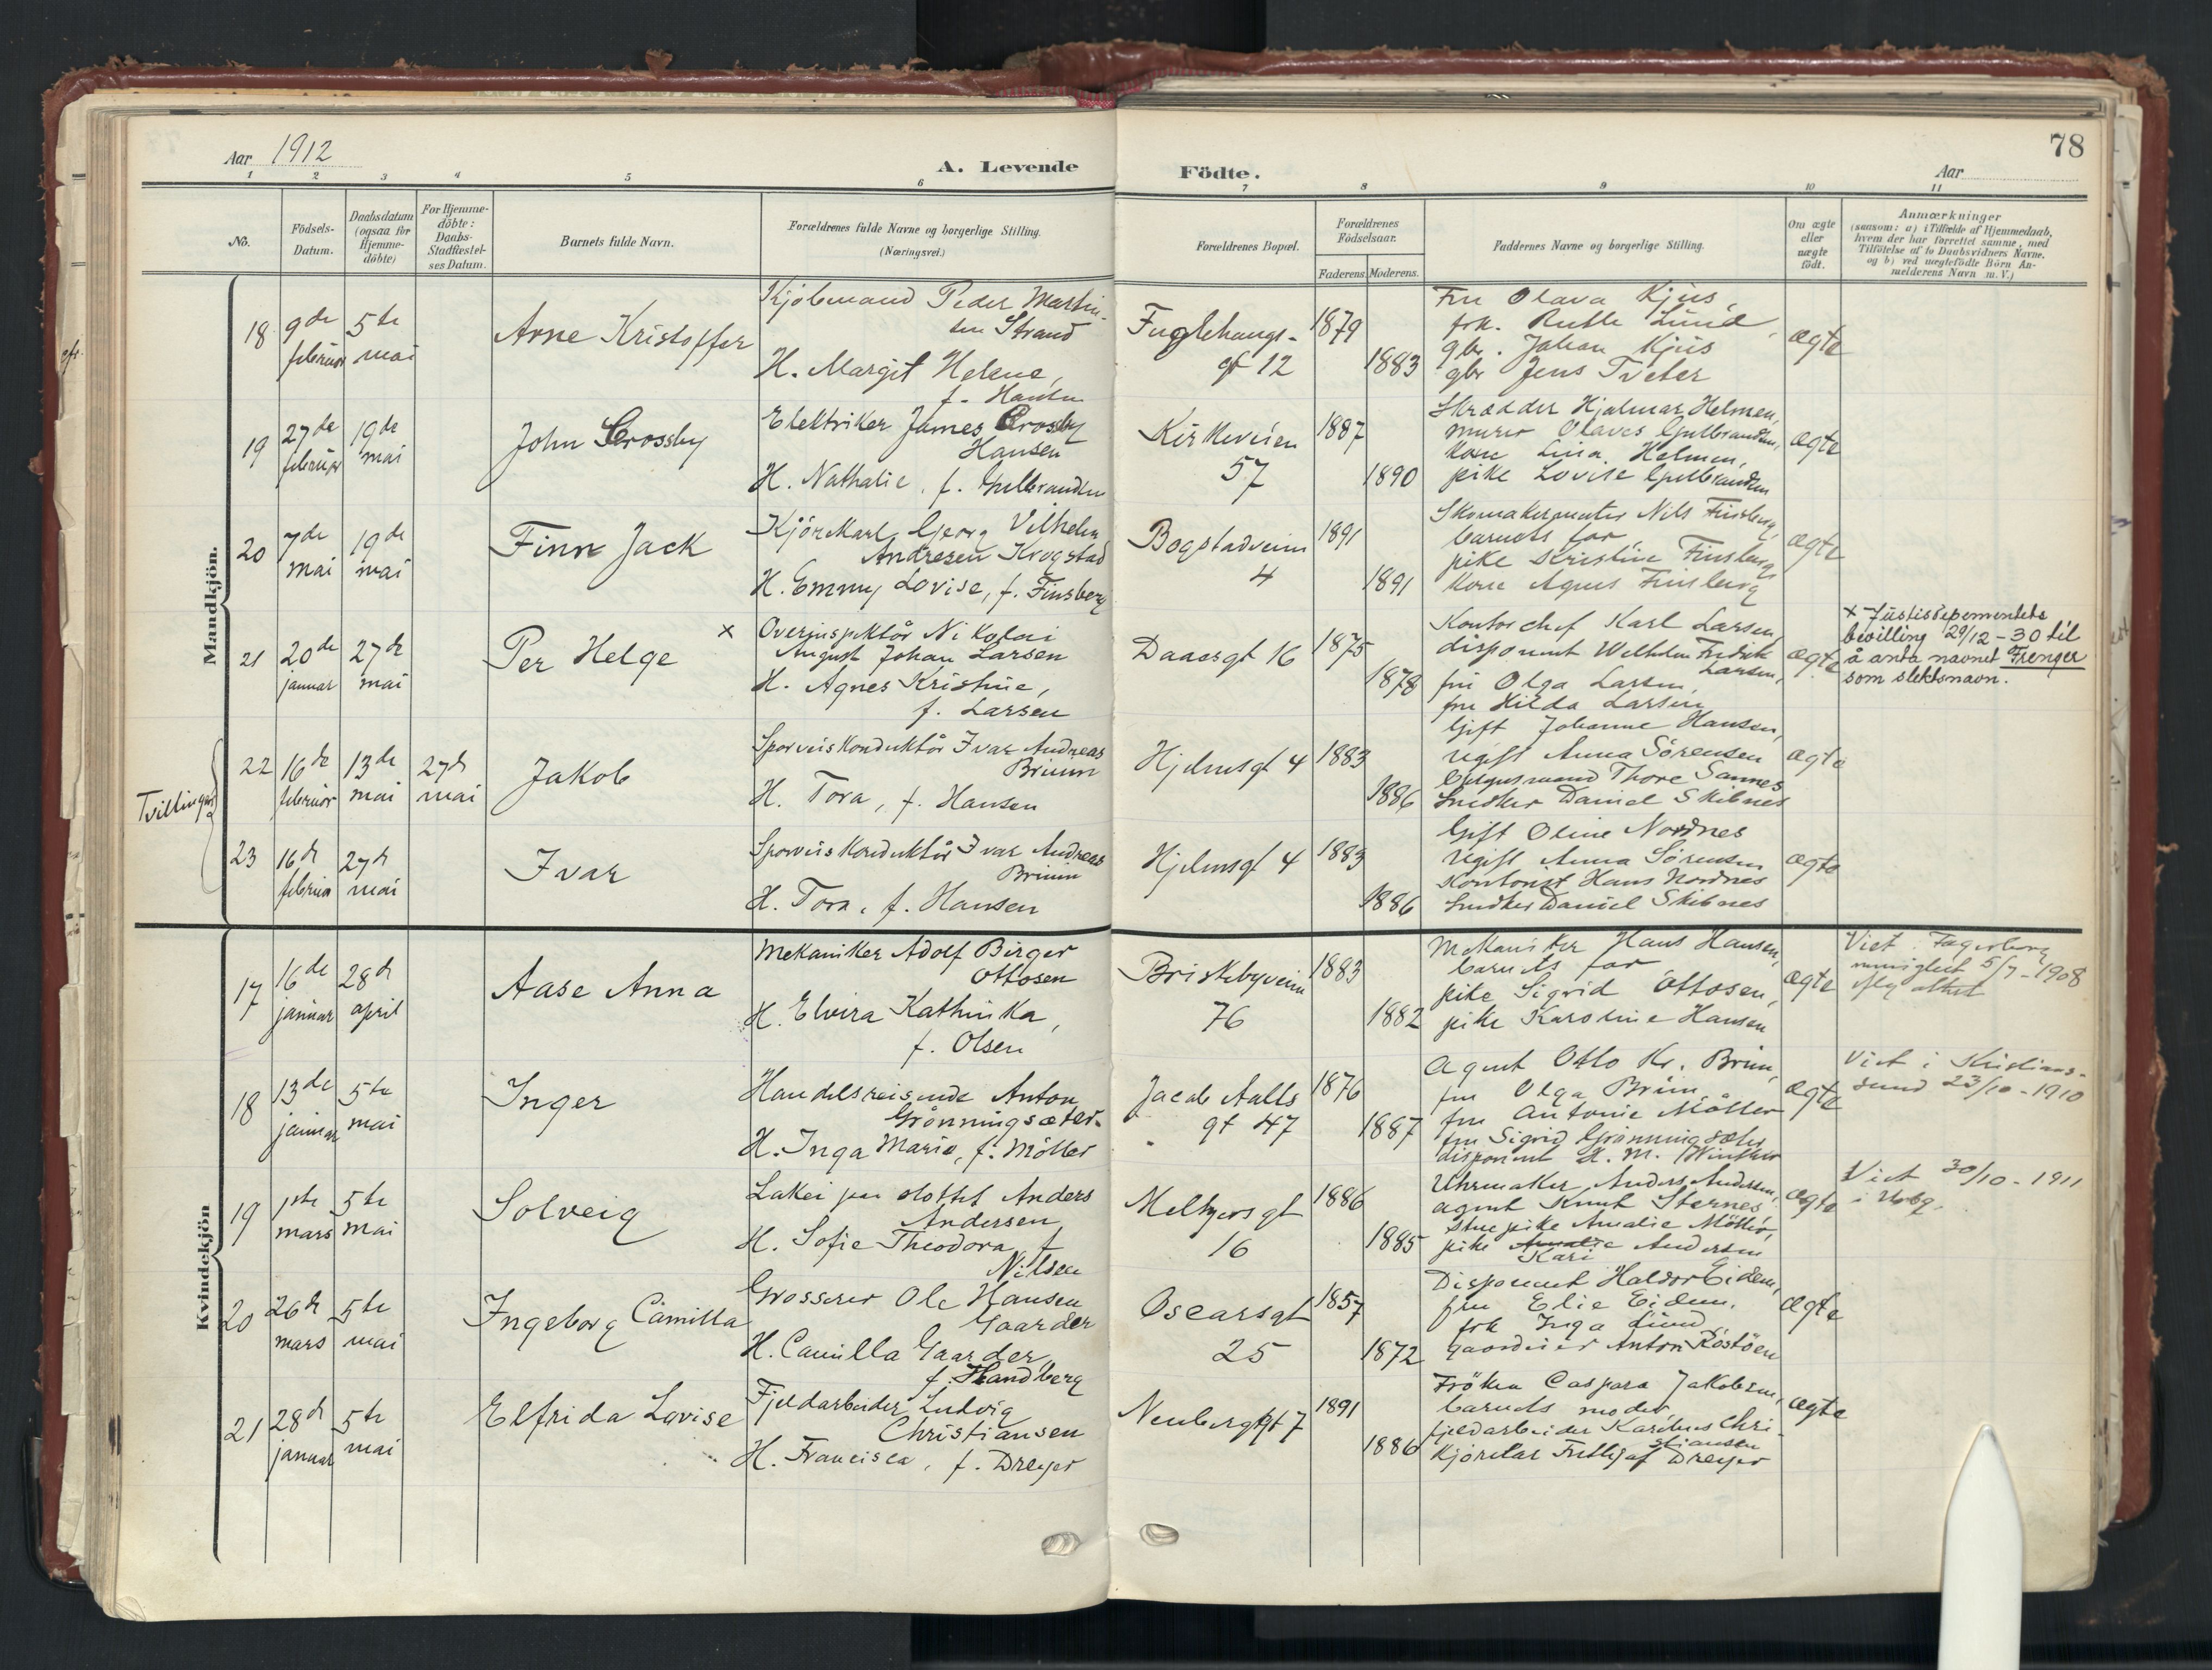 Aar 1912
A. Levende
Födte.
Aar
78
1 2 3 4 5 6 7 8 9 10 11
No.
Födsels-
Datum.
Daabsdatum
(ogsaa for
Hjemme-
döbte)
For Hjemme-
döbte:
Daabs-
Stadfæstel-
ses Datum.
Barnets fulde Navn.
Forældrenes fulde Navne og borgerlige Stilling.
(Næringsvei.)
Forældrenes Bopæl.
Forældrenes
Födselsaar.
Faderens. Moderens.
Faddernes Navne og borgerlige Stilling.
Om ægte
eller
uægte
födt.
Anmærkninger
(saasom: a) i Tilfælde af Hjemmedaab,
hvem der har forrettet samme, med
Tilföielse af to Daabsvidners Navne,
og b) ved uægtefödte Börn An-
melderens Navn m. V.)
Mandkjön.
18
9de
februar
5te
mai
Arne Kristoffer
Kjöbmand Peder Martin-
sen Strand
H. Margit Helene,
f. Hansen
Fuglehaugs-
gt 12
1879
1883
Fru Olava Kjus,
frk. Ruth Lund,
gbr. Johan Kjus
gbr Jens Tveter
ægte
19
27de
februar
19de
mai
John Crossby
Elektriker James Crossby
Hansen
H. Nathalie, f. Gulbrandsen
Kirkeveien
57
1887
1890
Skrædder Hjalmar Helmen,
murer Olaves Gulbrandsen,
kone Lina Helmen,
pike Lovise Gulbrandsen
ægte
20
7de
mai
19de
mai
Finn Jack
Kjörekarl Georg Vilhelm
Andresen Krogstad
H. Emmy Lovise, f. Finsberg
Bogstadveien
4
1891
1891
Skomakermester Nils Finsberg,
barnets far,
pike Kristine Finsberg,
kone Agnes Finsberg
ægte
21
20de
januar
27de
mai
Per Helge
x Overinspektör Nikolai
August Johan Larsen
H. Agnes Kristine,
f. Larsen
Daaesgt 16
1875
1878
Kontorchef Karl Larsen,
disponent Wilhelm Fredrik
Larsen,
fru Olga Larsen,
fru Hilda Larsen
ægte
x Justisdepementets
bevilling 29/12-30 til
å anta navnet Frenger
som slektsnavn.
Tvillinger
22
16de
februar
13de
mai
27de
mai
Jakob
Sporveiskonduktör Ivar Andreas
Bruun
H. Tora, f. Hansen
Hjelmsgt 4
1883
1886
Gift Johanne Hansen,
ugift Anna Sörensen
Thore Sannes
Snedker Daniel Skibnes
ægte
23
16de
februar
27de
mai
Ivar
Sporveiskonduktör Ivar Andreas
Bruun
H. Tora, f. Hansen
Hjelmsgt 4
1883
1886
Gift Oline Nordnes
ugift Anna Sörensen
Kontorist Hans Nordnes
Snedker Daniel Skibnes
ægte
Kvindekjön
17
16de
januar
28de
april
Aase Anna
Mekaniker Adolf Birger
Ottosen
H. Elvira Kathinka,
f. Olsen
Briskebyveien
76
1883
1882
Mekaniker Hans Hansen,
barnets far
pike Sigrid Ottosen,
pike Karoline Hansen
ægte
Viet Fagerborg
menighet 5/7-1908
attest
18
13de
januar
5te
mai
Inger
Handelsreisende Anton
Grönningsæter.
H. Inga Marie, f. Möller
Jacob Aalls
gt 47
1876
1887
Agent Otto Kr. Bruun,
fru Olga Bruun,
fru Antonie Möller
fru Sigrid Grönningsæter
disponent H. M. Winther
ægte
Viet i Kristians-
sund 23/10-1910
19
1ste
mars
5te
mai
Solveig
Lakei paa slottet Anders
Andersen,
H. Sofie Theodora, f
Nilsen
Meltzersgt
16
1886
1885
Uhrmaker Anders Andersen,
agent Knut Sternes,
stuepike Amalie Möller,
pike Amalie Andersen
Kari
ægte
Viet 30/10-1911
i
20
26de
mars
5te
mai
Ingeborg Camilla
Grosserer Ole Hansen
Gaarder
H. Camilla Gaarder
f. Strandberg
Oscarsgt
25
1857
1872
Disponent Haldor Eidem,
fru Elie Eidem,
frk Inga Lund,
gaardeier Anton Röstöen
ægte
21
28de
januar
5te
mai
Elfrida Lovise
Fjeldarbeider Ludvig
Christiansen
H. Francisca, f. Dreyer
Neuberggt 7
1891
1886
Fröken Caspara Jakobsen,
barnets moder,
fjeldarbeider Karinus Chri-
stiansen
Kjörekar Frithjof Dreyer
ægte